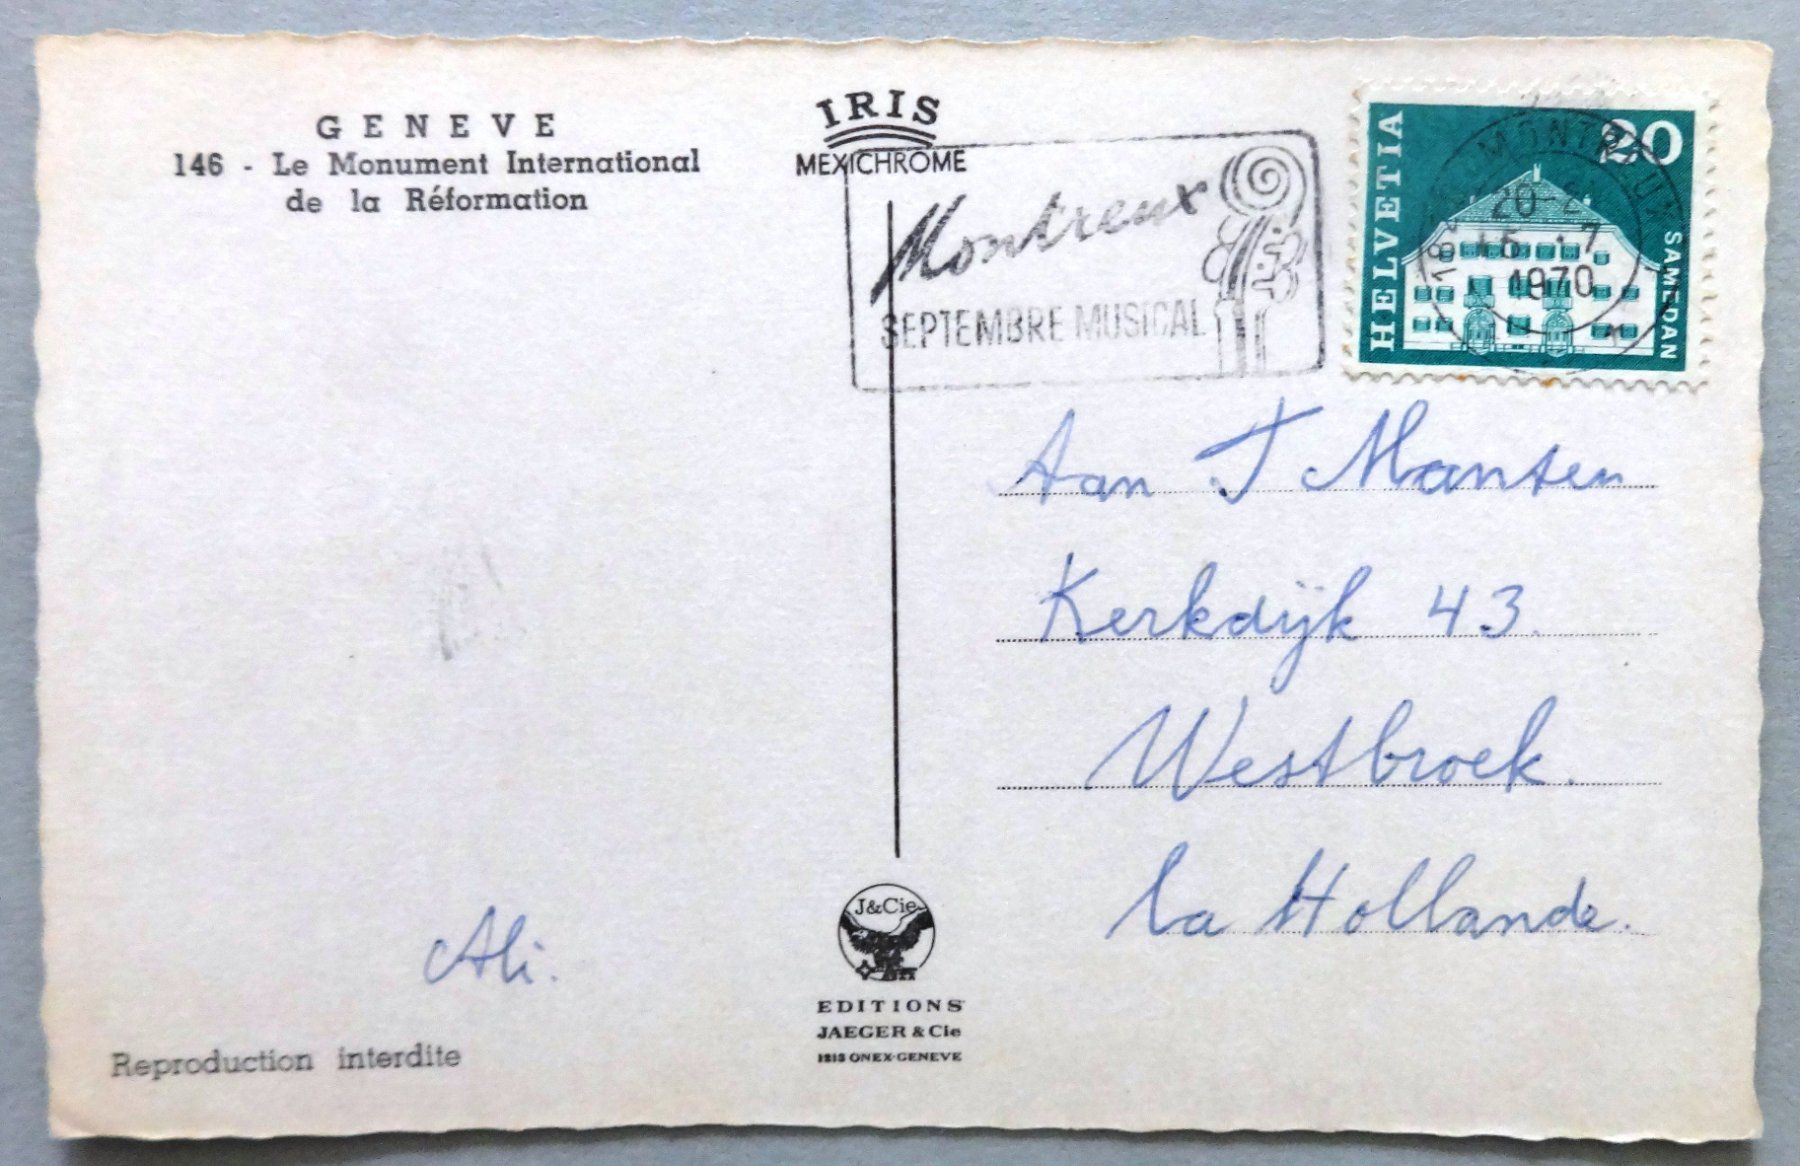 GENEVE
146 - Le Monument International
de la Réformation
IRIS
MEXICHROME
Montreux
SEPTEMBRE MUSICAL
HELVETIA
20
SAMEDAN
MONTREUX
1820
20-2
15.-7
1970
1
Aan J Manten
Kerkdijk 43.
Westbroek.
la Hollande.
Ali.
Reproduction interdite
J&Cie
EDITIONS
JAEGER & Cie
1213 ONEX-GENEVE